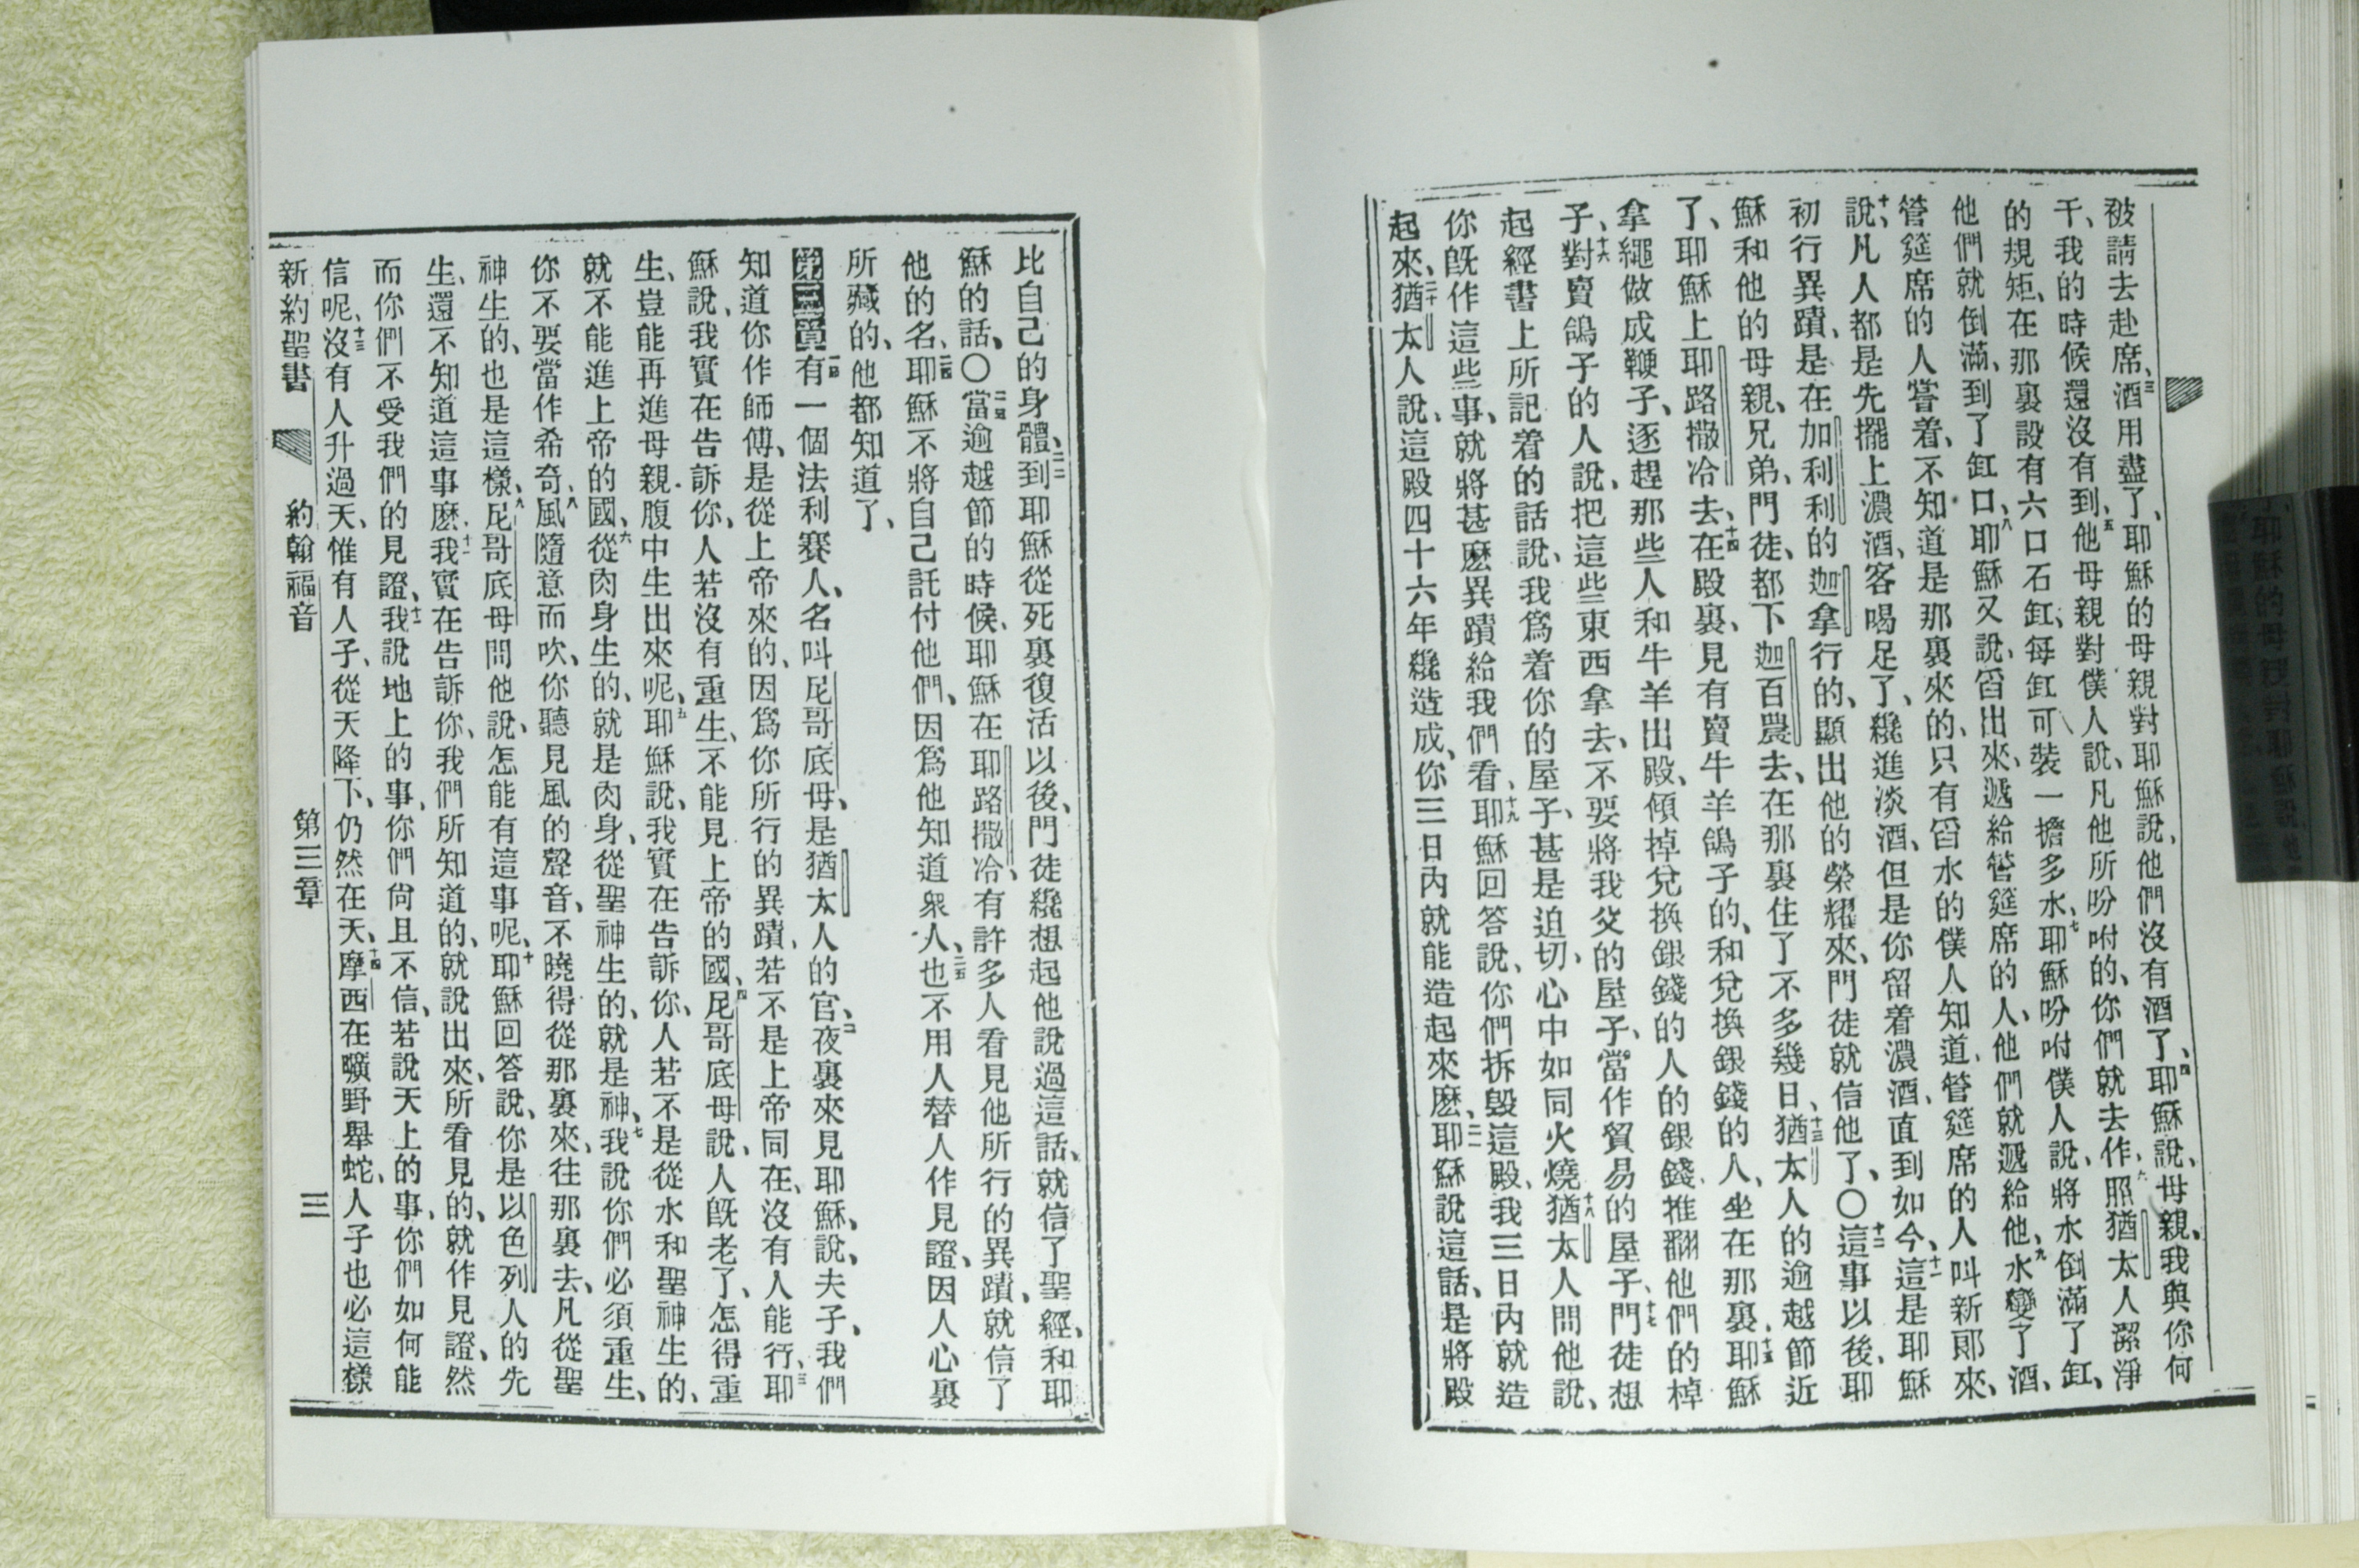 被請去赴席、三酒用盡了、耶穌的母親對耶穌說、他們沒有酒了、四耶穌說、母親、我與你何
干、我的時候還沒有到、五他母親對僕人說、凡他所吩咐的、你們就去作、六照猶太人潔淨
的規矩、在那裏設有六口石缸、每缸可裝一擔多水、七耶穌吩咐僕人說、將水倒滿了缸、
他們就倒滿、到了缸口、八耶穌又說、舀出來、遞給管筵席的人、他們就遞給他、九水變了酒、
管筵席的人嘗着、不知道是那裏來的、只有舀水的僕人知道、管筵席的人叫新郎來、
十說、凡人都是先擺上濃酒、客喝足了、纔進淡酒、但是你留着濃酒、直到如今、十一這是耶穌
初行異蹟、是在加利利的迦拿行的、顯出他的榮耀來、門徒就信他了、〇十二這事以後、耶
穌和他的母親、兄弟、門徒、都下迦百農去、在那裏住了不多幾日、十三猶太人的逾越節近
了、耶穌上耶路撒冷去、十四在殿裏、見有賣牛羊鴿子的、和兌換銀錢的人、坐在那裏、十五耶穌
拿繩做成鞭子、逐趕那些人和牛羊出殿、傾掉兌換銀錢的人的銀錢、推翻他們的棹
子、十六對賣鴿子的人說、把這些東西拿去、不要將我父的屋子、當作貿易的屋子、十七門徒想
起經書上所記着的話說、我爲着你的屋子、甚是迫切、心中如同火燒、十八猶太人問他說、
你旣作這些事、就將甚麽異蹟給我們看、十九耶穌回答說、你們拆毀這殿、我三日內就造
起來、二十猶太人說、這殿四十六年纔造成、你三日內就能造起來麽、二一耶穌說這話、是將殿
比自己的身體、二二到耶穌從死裏復活以後、門徒纔想起他說過這話、就信了聖經、和耶
穌的話、〇二三當逾越節的時候、耶穌在耶路撒冷、有許多人看見他所行的異蹟、就信了
他的名、二四耶穌不將自己託付他們、因爲他知道衆人、二五也不用人替人作見證、因人心裏
所藏的、他都知道了、
第三章一有一個法利賽人、名叫尼哥底母、是猶太人的官、二夜裏來見耶穌、說、夫子、我們
知道你作師傅、是從上帝來的、因爲你所行的異蹟、若不是上帝同在、沒有人能行、三耶
穌說、我實在告訴你、人若沒有重生、不能見上帝的國、四尼哥底母說、人旣老了、怎得重
生、豈能再進母親腹中生出來呢、五耶穌說、我實在告訴你、人若不是從水和聖神生的、
就不能進上帝的國、六從肉身生的、就是肉身、從聖神生的、就是神、七我說你們必須重生、
你不要當作希奇、八風隨意而吹、你聽見風的聲音、不曉得從那裏來、往那裏去、凡從聖
神生的、也是這樣、九尼哥底母問他說、怎能有這事呢、十耶穌回答說、你是以色列人的先
生、還不知道這事麽、十一我實在告訴你、我們所知道的、就說出來、所看見的、就作見證、然
而你們不受我們的見證、十二我說地上的事、你們尙且不信、若說天上的事、你們如何能
信呢、十三沒有人升過天、惟有人子、從天降下、仍然在天、十四摩西在曠野舉蛇、人子也必這樣
新約聖書 約翰福音 第三章 三